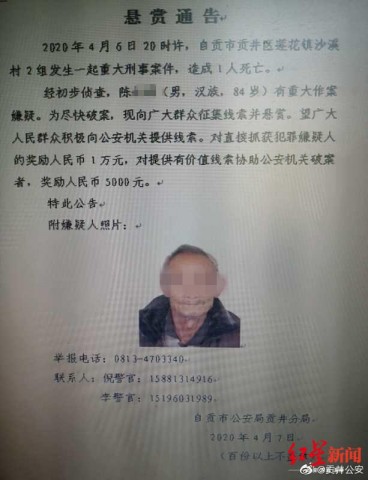 悬赏通告
2020年4月6日20时许，自贡市贡井区莲花镇沙溪
村2组发生一起重大刑事案件，造成1人死亡。
经初步侦查，陈（男，汉族，84岁）有重大作案
嫌疑。为尽快破案，现向广大群众征集线索并悬赏。望广大
人民群众积极向公安机关提供线索。对直接抓获犯罪嫌疑人
的奖励人民币1万元，对提供有价值线索协助公安机关破案
者，奖励人民币5000元。
特此公告
附嫌疑人照片：
举报电话：0813-4703340
联系人：倪警官：15881314916
李警官：15196031989
自贡市公安局贡井分局
2020年4月7日
（百份以上不
红星新闻
@贡井公安